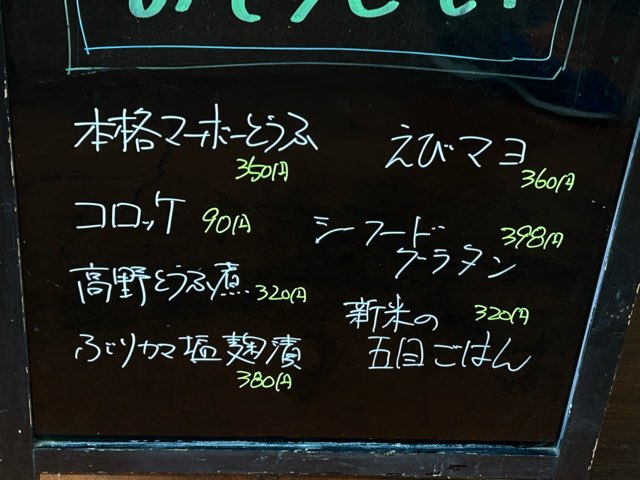 本格マーボーどうふ
350円
コロッケ 90円
高野どうふ煮 320円
ぶりカマ塩麹漬
380円
えびマヨ
360円
シーフード 398円
グラタン
新米の 320円
五目ごはん